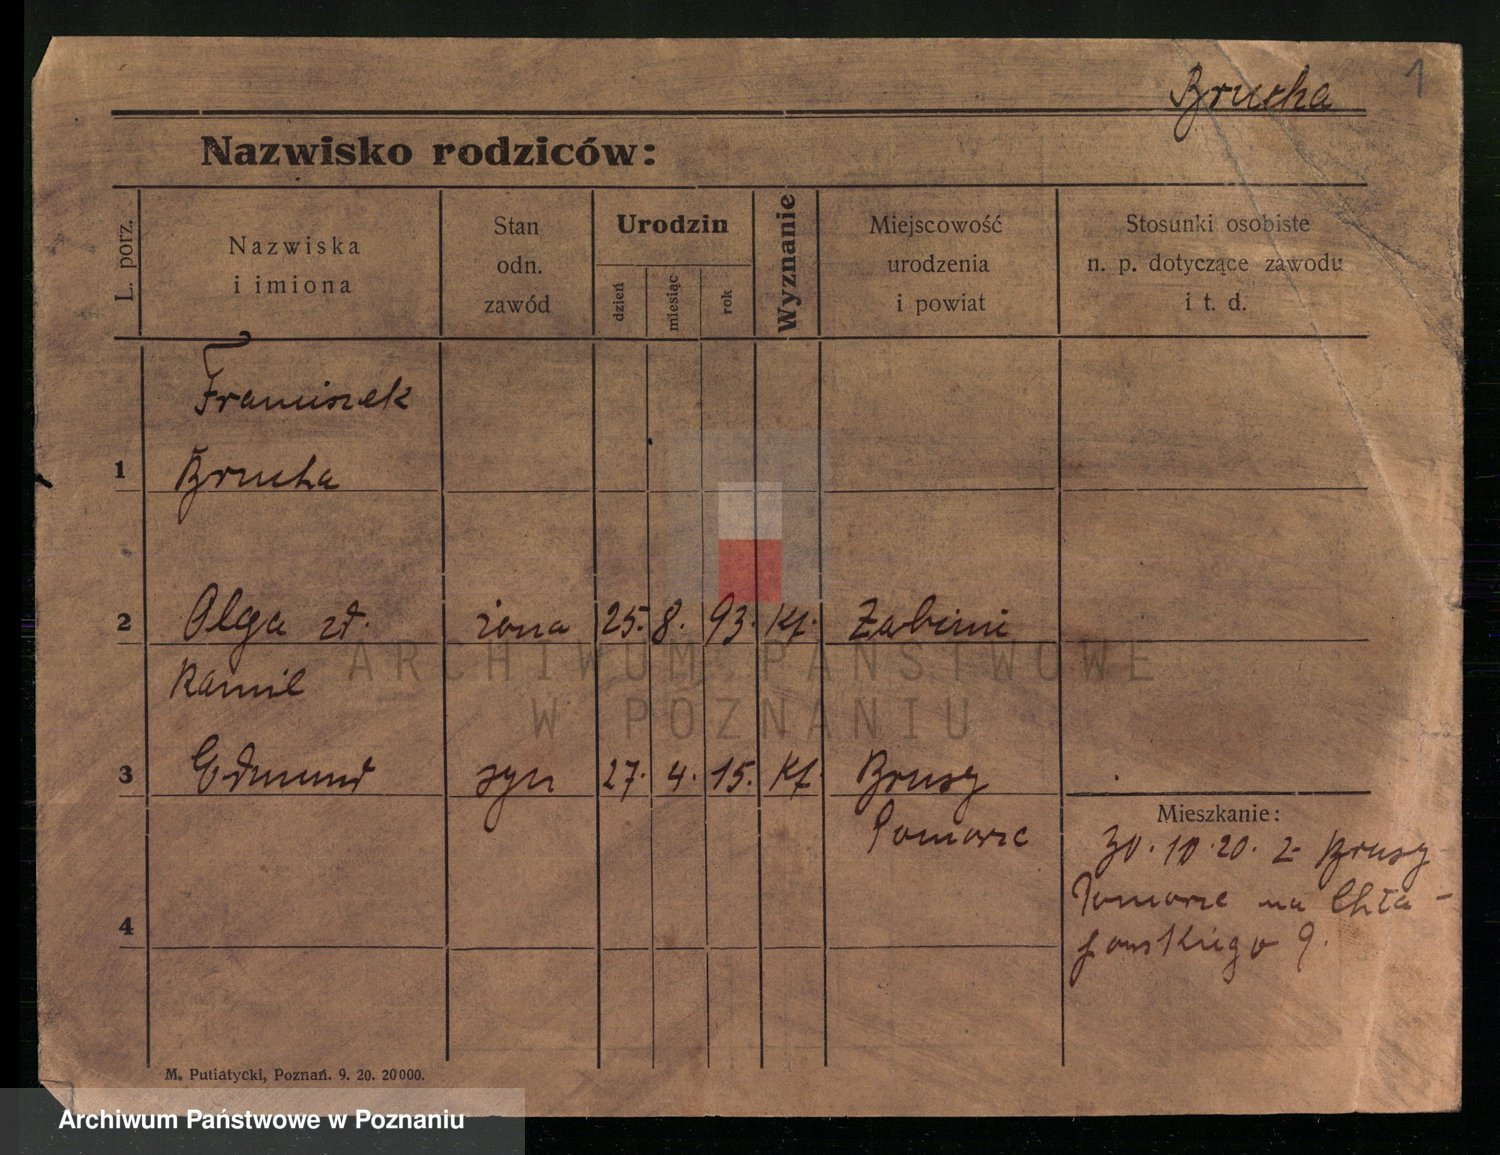 1
Brucha
Nazwisko rodziców:
L. porz.
Nazwiska
i imiona
Stan
odn.
zawód
Urodzin
dzień
miesiąc
rok
Wyznanie
Miejscowość
urodzenia
i powiat
Stosunki osobiste
n. p. dotyczące zawodu
i t. d.
Franciszek
1 Brucha
2 Olga zd. żona 25. 8. 93. Kf.
Kamil
3 Edmund syn 27. 4. 15. Kf. Brusy
Pomorze
Mieszkanie:
30. 10. 20. z Brusy
Pomorze na Chła-
powskiego 9.
4
M. Putiatycki, Poznań. 9. 20. 20000.
ARCHIWUM PAŃSTWOWE
W POZNANIU
Archiwum Państwowe w Poznaniu